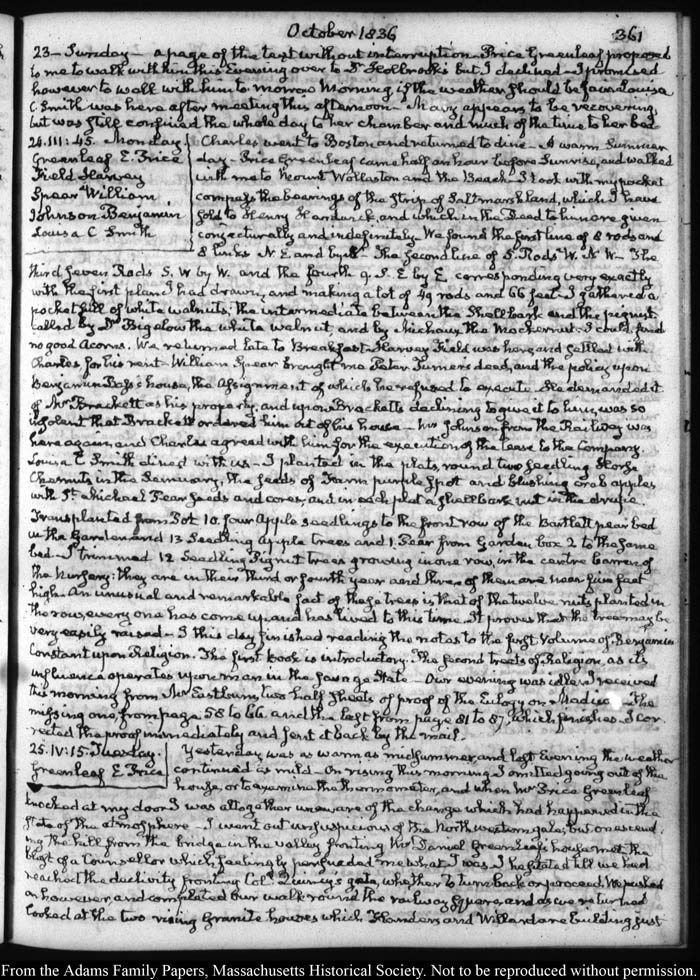 October 1836
361
23 — Sunday — a page of the text without interruption. Price Greenleaf proposed
to me to walk with him this Evening over to Dr Holbrook's but I declined — I promised
however to walk with him to morrow Morning if the weather should be fair. Louisa
C. Smith was here after meeting this afternoon. Mary appears to be recovering,
but was still confined the whole day to her chamber and much of the time to her bed
24. III:45. Monday
Greenleaf E. Price
Field Harvey
Spear William
Johnson Benjamin
Louisa C Smith
Charles went to Boston and returned to dine — A warm Summer
day — Price Greenleaf came half an hour before Sunrise, and walked
with me to Mount Wollaston and the Beach. I took with my pocket
compass the bearings of the Strip of Saltmarsh land, which I have
sold to Henry and which in the Deed to him are given
conjecturally and indefinitely. We found the first line of 8 rods and
8 links N. E. and by The second line of 5. Rods W. N. W — The
third seven Rods S. W by W. and the fourth 9. S. E by E corresponding very exactly
with the first plan I had drawn, and making a lot of 49 rods and 66 feet. I gathered a
pocket full of white walnuts; the intermediate between the Shellbark and the pignut
called by Dr Bigelow the white walnut, and by Michaux the Mockernut. I could find
no good Acorns. We returned late to Breakfast. Harvey Field was here and settled with
Charles for his rent — William Spear brought me Peter Turner's deed, and the policy upon
Benjamin Page's house, the Assignment of which he refused to execute. He demanded it
of Mr Brackett as his property, and upon Brackett's declining to give it to him, was so
insolent that Brackett ordered him out of his house — Mr Johnson from the Railway was
here again and Charles agreed with him for the execution of the lease to the Company.
Louisa C Smith dined with us — I planted in the plats round two seedling Horse
Chesnuts in the Seminary, the seeds of Farm purple spot and blushing crab apples
with St. Michael Pear seeds and cores, and in each plat a shellbark nut in the drupe.
Transplanted from Pot 10. four Apple seedlings to the front row of the Bartlett pear bed
in the Garden and 13 Seedling Apple trees and 1. Pear from Garden box 2 to the same
bed — I trimmed 12 Seedling Pignut trees growing in one row, in the centre barren of
the Nursery: they are in their third or fourth year and three of them are near five feet
high. An unusual and remarkable fact of these trees is that of the twelve nuts planted in
the row, every one has come up and has lived to this time. It proves that the tree may be
very easily raised — I this day finished reading the notes to the first Volume of Benjamin
Constant upon Religion. The first book is introductory. The second treats of Religion, as its
influence operates upon man in the Savage State — Our evening was idle. I received
this morning from Mr Eastburn, two half sheets of proof of the Eulogy on Madison — The
missing one from page 58 to 66. and the last from page 81 to 87, which finishes. I cor-
rected the proof immediately and sent it back by the mail.
25. IV:15. Tuesday.
Greenleaf E Price
Yesterday was as warm as midsummer, and last Evening the weather
continued as mild — On rising this morning I omitted going out of the
house, or to examine the thermometer, and when Mr Price Greenleaf
knocked at my door I was altogether unaware of the change which had happened in the
state of the atmosphere — I went out unsuspicious of the North western gale, but on ascend-
ing the hill from the bridge in the valley fronting Mr Daniel Greenleaf's house met the
blast of a Counsellor which feelingly persuaded me what I was. I hesitated till we had
reached the declivity fronting Col. Quincy's gate, whether to turn back or proceed. We pushed
on however, and completed our walk round the railway Square, and as we returned
looked at the two rising Granite houses which Flanders and Willard are building just
From the Adams Family Papers, Massachusetts Historical Society. Not to be reproduced without permission.